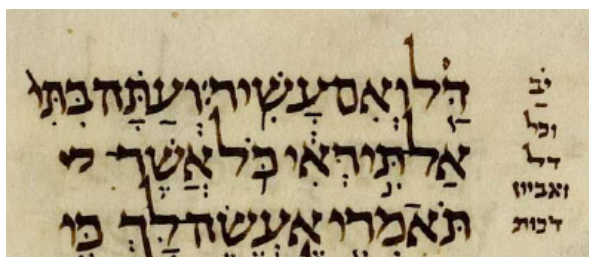 דַּל וְאִם עָשִׁיר׃ וְעַתָּה בִּתִּי
אַל תִּירְאִי כֹּל אֲשֶׁר
תֹּאמְרִי אֶעֱשֶׂה לָּךְ כִּי
יב
וכל
דל
ואביון
דכות